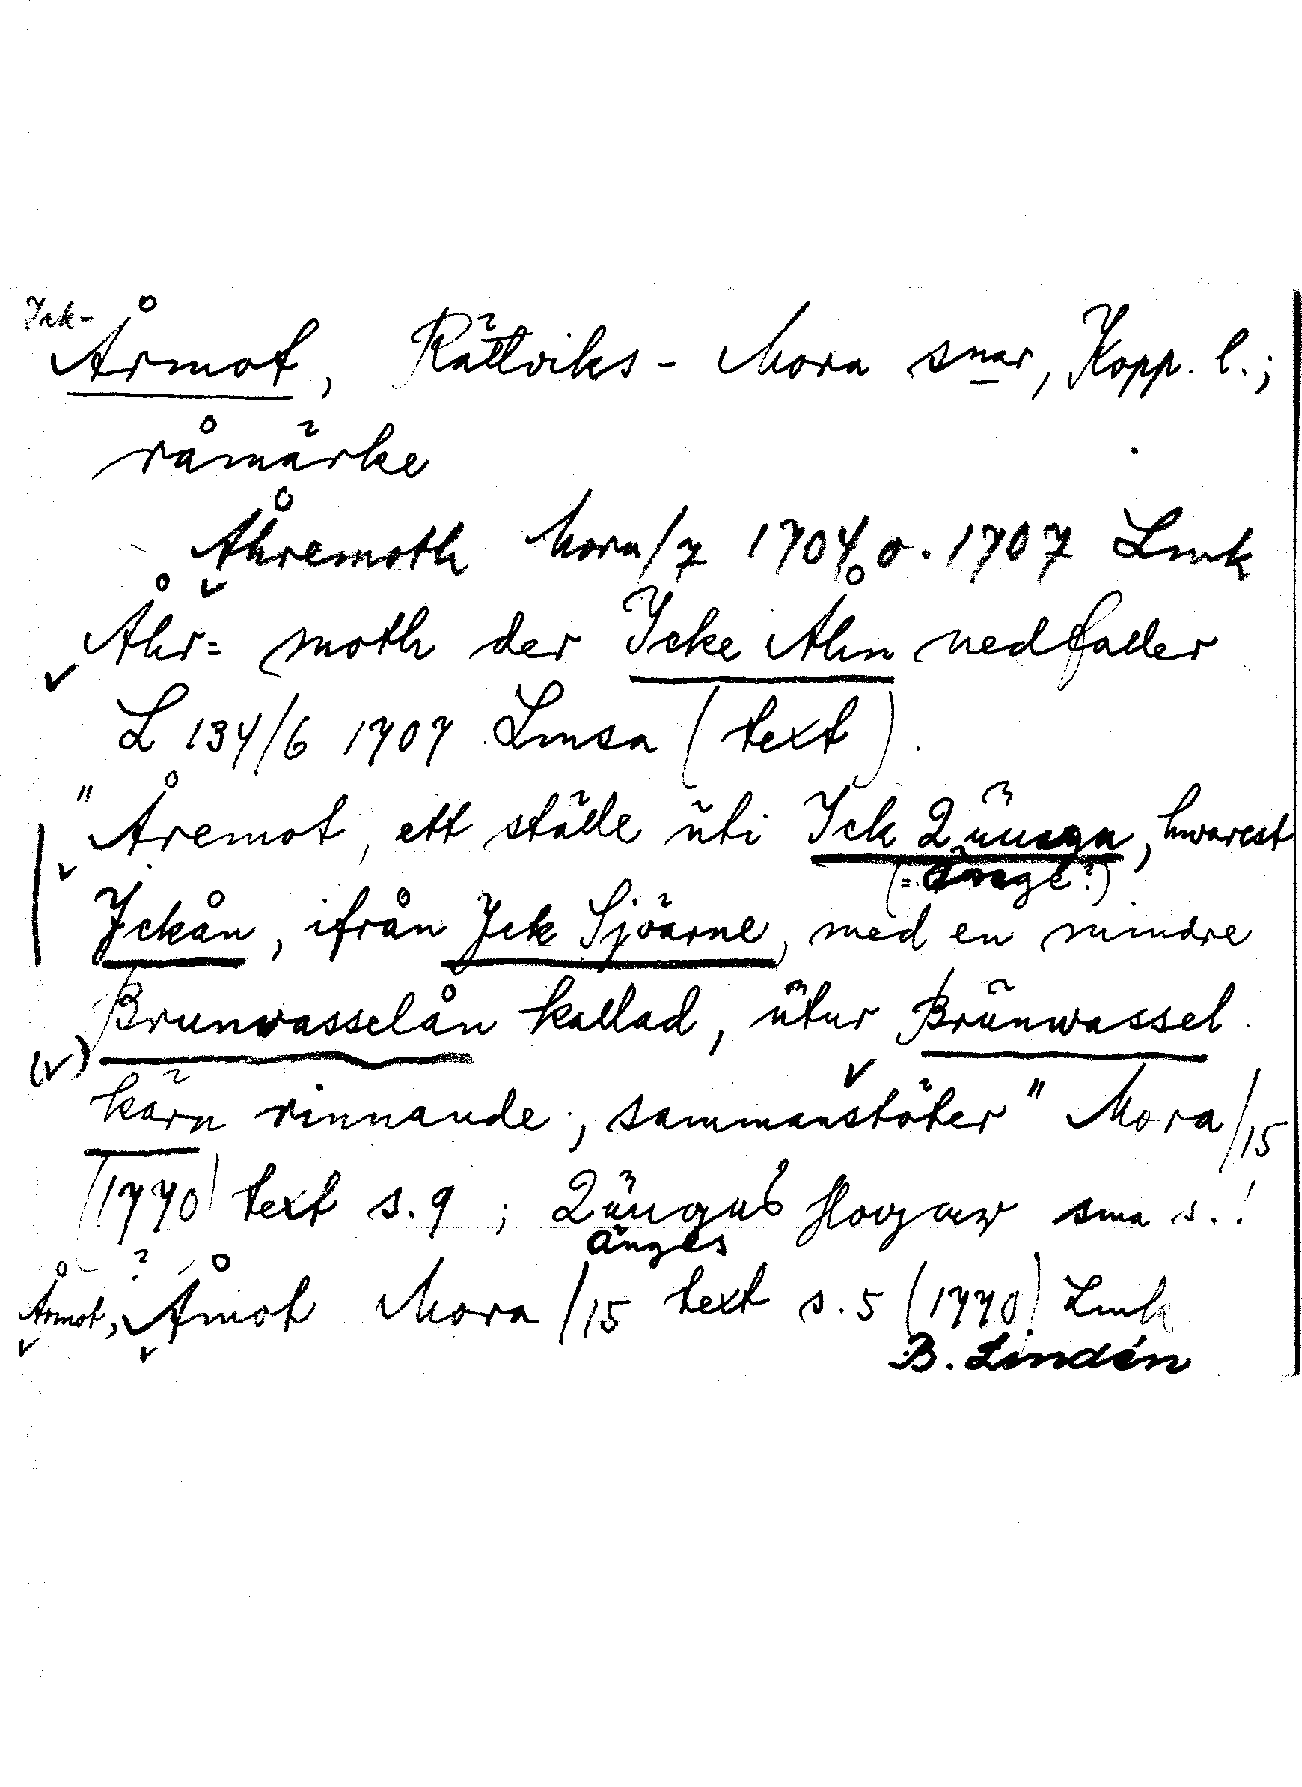 Jck-
Årmot, Rättviks- Mora snar, Kopp. l.;
råmärke
Åhremoth Mora/7 1704 o. 1707 Lmk
Åhr= moth der Jcke Åhn nedfaller
L 134/6 1707 Lmsa (text).
"Åremot, ett ställe uti Jck, hwarest
(= änge?)
Jckån, ifrån Jck Sjöarne, med en mindre
Brunwasselån kallad, utur Brunwassel
(v) kärn rinnande, sammanstöter" Mora/15
(1770) text s. 9; sma s.!
änges
Årmot, ? Åmot Mora/15 text s. 5 (1770) Lmk
B. Lindén